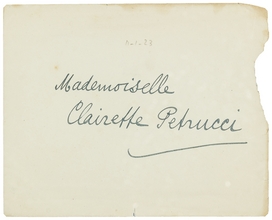 Mademoiselle
Clairette Petrucci